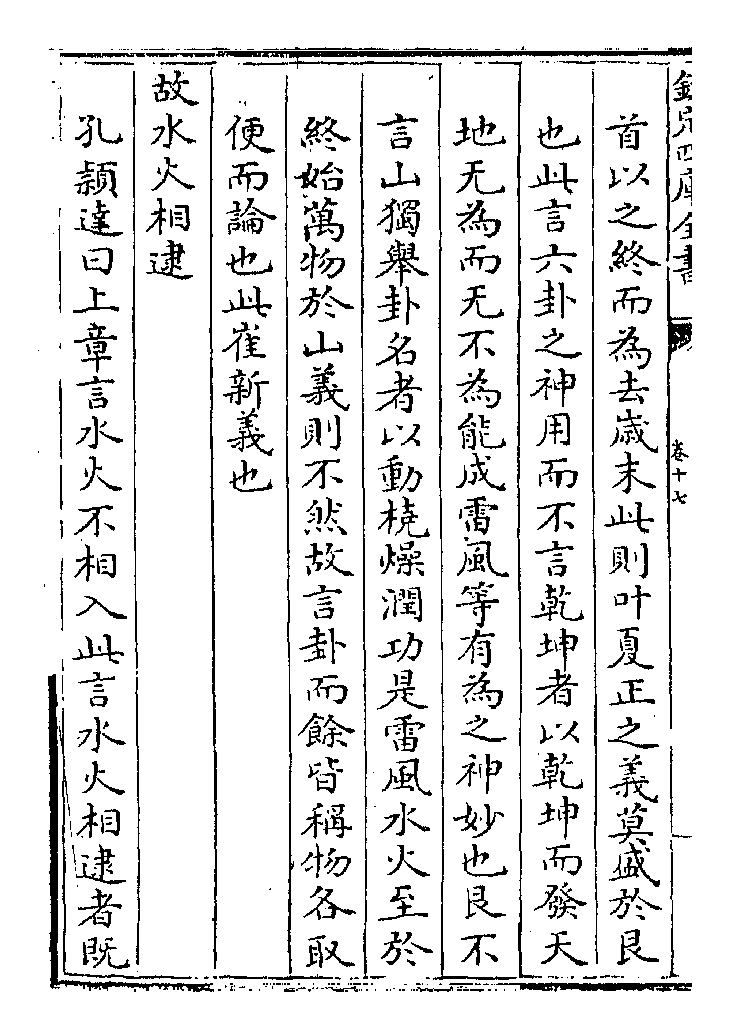 欽定四庫全書
卷十七
首以之終而為去歳末此則叶夏正之義莫盛於艮
也此言六卦之神用而不言乾坤者以乾坤而發天
地无為而无不為能成雷風等有為之神妙也艮不
言山獨舉卦名者以動橈燥潤功是雷風水火至於
終始萬物於山義則不然故言卦而餘皆稱物各取
便而論也此崔新義也
故水火相逮
孔穎達曰上章言水火不相入此言水火相逮者既